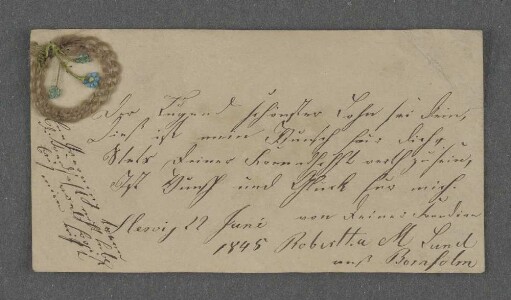 Der Tugend schönster Lohn sei dein,
Dies ist mein Wunsch für dich,
Stets Deiner Freundschaft werth zu sein,
Ist Wunsch und Glück für mich.
von Deiner Freundin
Sleswig 22 Juni
1845 Robertha M Lund
aus Bornholm